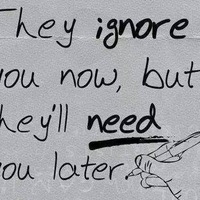 They ignore
you now, but
they'll need
you later.